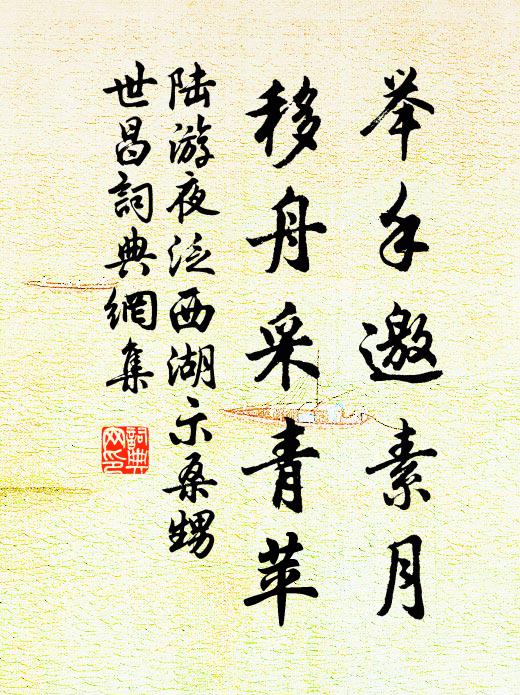 举手邀素月
移舟采青苹
陆游夜泛西湖示桑甥
世昌詞典網集
詞典